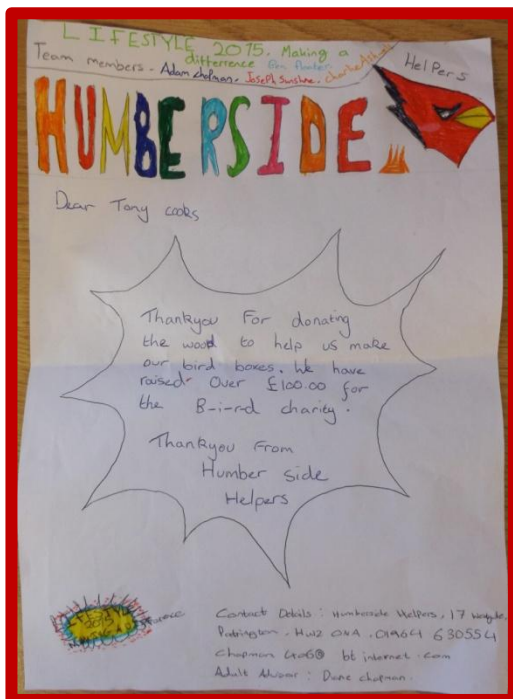 LIFESTYLE 2015. Making a
difference
Team members - Adam chapman. Joseph Sunshine. charlie
Helpers
HUMBERSIDE
Dear Tony cooks
Thankyou For donating
the wood to help us make
our bird boxes. We have
raised Over £100.00 for
the B-i-r-d charity.
Thankyou From
Humber side
Helpers
2015
Contact Details : Humberside Helpers, 17
Patrington. HU12 0NA. 01964 630554
Chapman 406@ bt internet.com
Adult Advisor : Diane chapman.